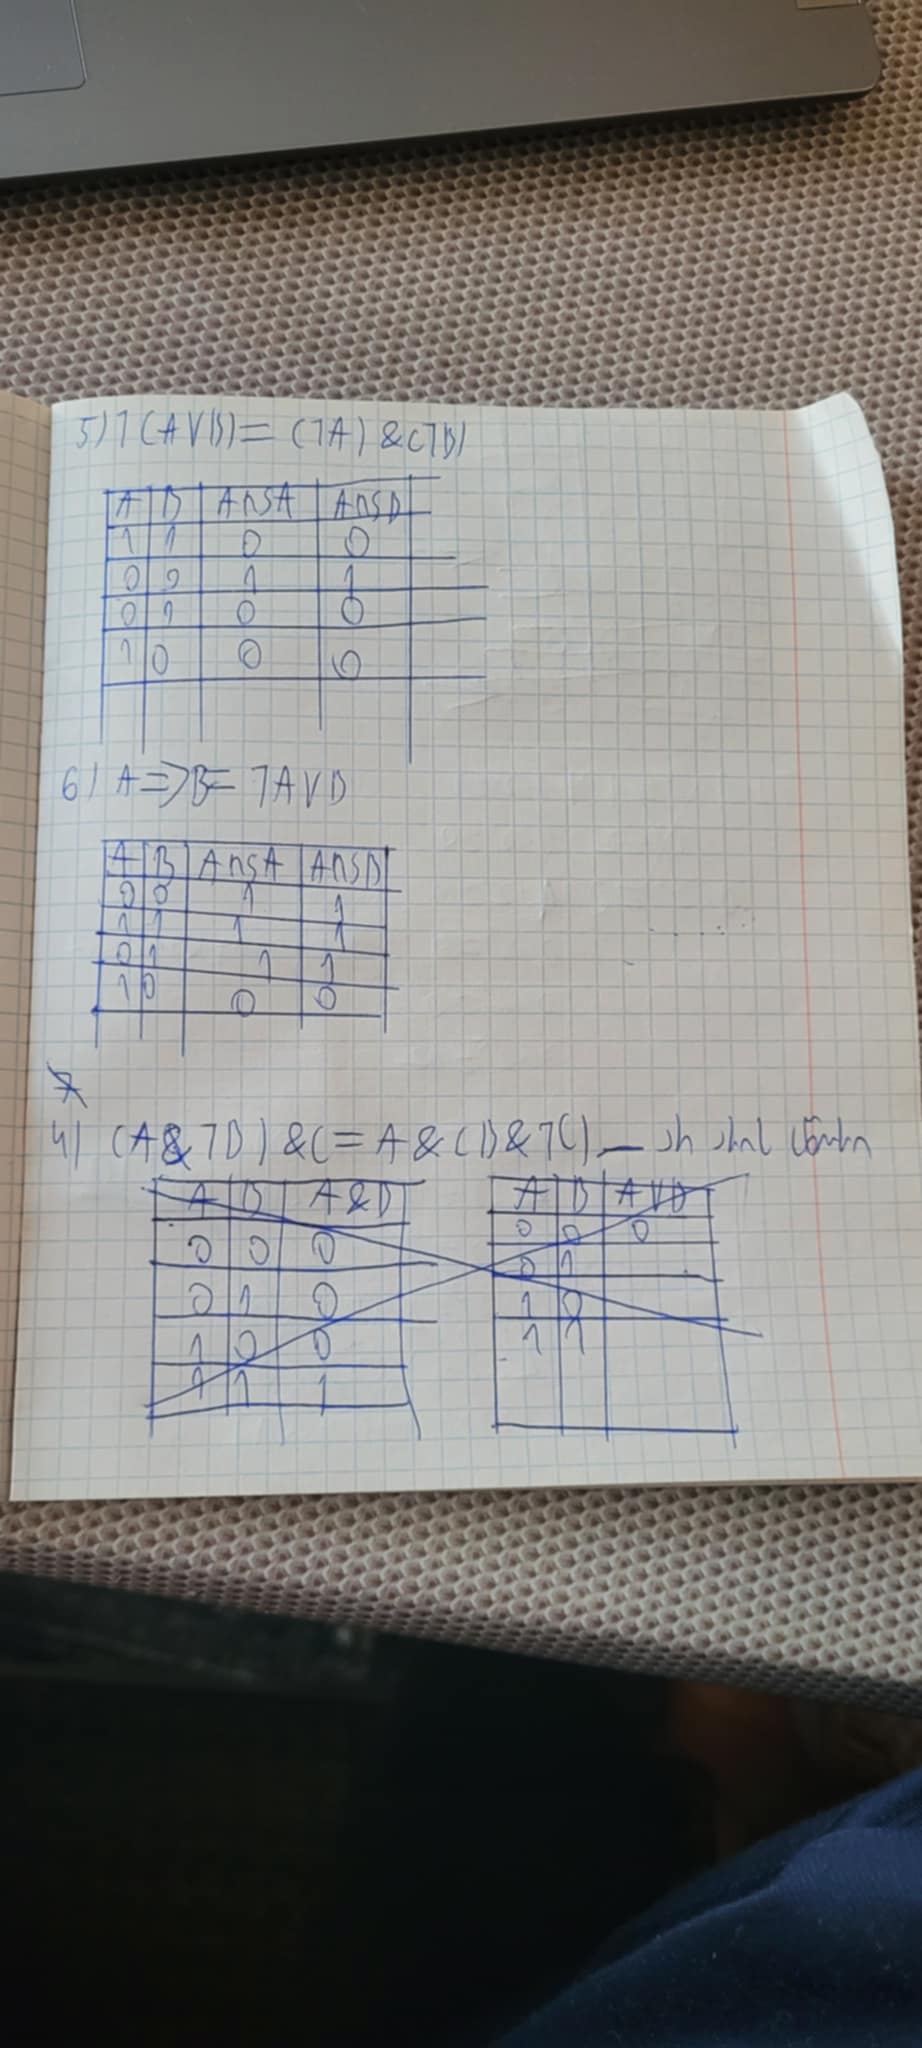 5) ¬(A∨B) = (¬A) & (¬B)
A B AnsA AnsB
1 1 0 0
0 0 1 1
0 1 0 0
1 0 0 0
6) A => B = ¬A∨B
A B AnsA AnsB
0 0 1 1
1 1 1 1
0 1 1 1
1 0 0 0
4) (A & ¬B) & C = A & (B & ¬C) –
A B A & B
0 0 0
0 1 0
1 0 0
1 1 1
A B A∨B
0 0 0
0 1
1 0
1 1